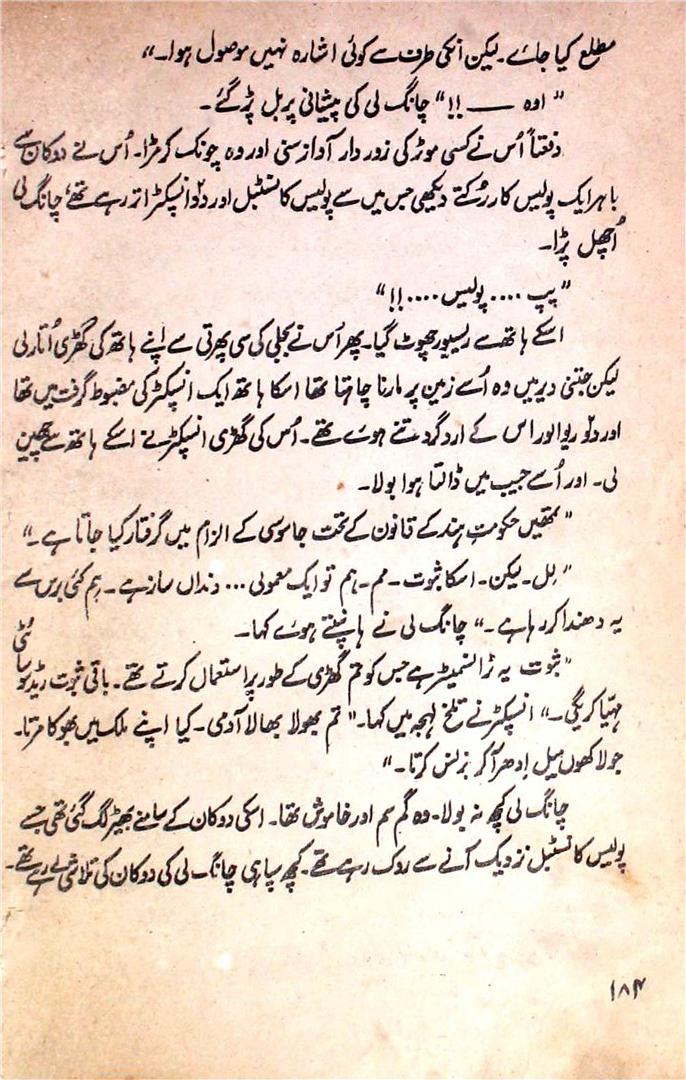 مطلع کیا جائے۔ لیکن انکی طرف سے کوئی اشارہ نہیں موصول ہوا۔"
"اوہ ——— !!" چانگ لی کی پیشانی پر بل پڑ گئے۔
دفعتاً اُس نے کسی موٹر کی زور دار آواز سنی اور وہ چونک کر مڑا۔ اُس نے دوکان سے
باہر ایک پولیس کار رُکتے دیکھی جس میں سے پولیس کانسٹبل اور دو انسپکٹر اتر رہے تھے، چانگ لی
اُچھل پڑا۔
"پپ .... پولیس .... !!"
اسکے ہاتھ سے ریسیور چھوٹ گیا۔ پھر اُس نے بجلی کی سی پھرتی سے اپنے ہاتھ کی گھڑی اُتار لی
لیکن جتنی دیر میں وہ اُسے زمین پر مارنا چاہتا تھا اسکا ہاتھ ایک انسپکٹر کی مضبوط گرفت میں تھا
اور دو ریوالور اس کے ارد گرد تنے ہوئے تھے۔ اُس کی گھڑی انسپکٹر نے اسکے ہاتھ سے چھین
لی۔ اور اُسے جیب میں ڈالتا ہوا بولا۔
"تمھیں حکومتِ ہند کے قانون کے تحت جاسوسی کے الزام میں گرفتار کیا جاتا ہے۔"
"لِل۔ لیکن۔ اسکا ثبوت۔ مم۔ ہم تو ایک معمولی ... دنداں ساز ہے۔ ہم کئی برس سے
یہ دھندا کر رہا ہے۔" چانگ لی نے ہانپتے ہوئے کہا۔
"ثبوت یہ ٹرانسمیٹر ہے جس کو تم گھڑی کے طور پر استعمال کرتے تھے۔ باقی ثبوت ریڈیو سائٹی
مہیّا کریگی۔" انسپکٹر نے تلخ لہجہ میں کہا۔ "تم بھولا بھالا آدمی۔ کیا اپنے ملک میں بھوکا مرتا۔
جو لاکھوں میل اِدھر آ کر بزنس کرتا۔"
چانگ لی کچھ نہ بولا۔ وہ گم سم اور خاموش تھا۔ اسکی دوکان کے سامنے بھیڑ لگ گئی تھی جسے
پولیس کانسٹبل نزدیک آنے سے روک رہے تھے۔ کچھ سپاہی چانگ لی کی دوکان کی تلاشی لے رہے تھے۔
۱۸۴